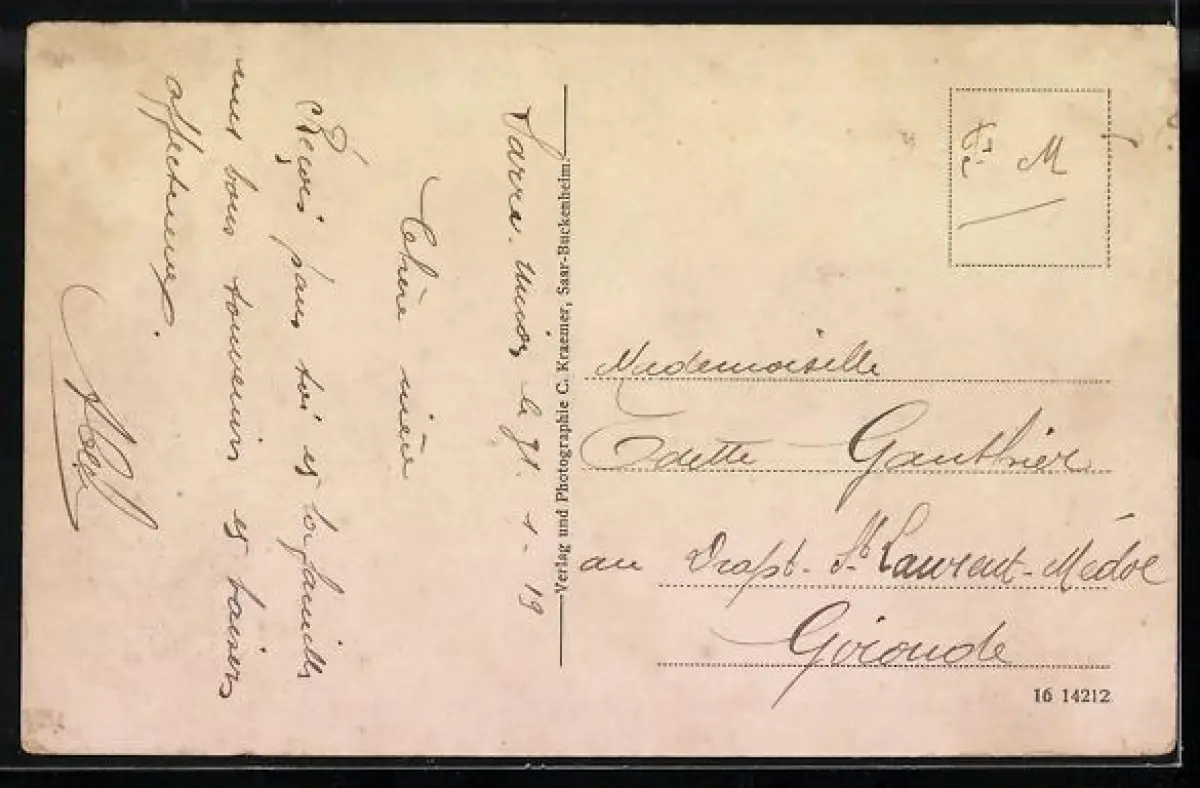 Sarre-Union le 31-1-19
Chère nièce
Reçois pour toi et ta famille
mes bons souvenirs et baisers
affectueux.
Verlag und Photographie C. Kraemer, Saar-Buckenheim.
F. M
Mademoiselle
Odette Gauthier
au St Laurent-Médoc
Gironde
16 14212